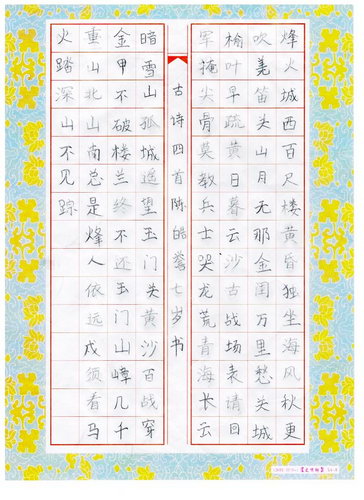 烽火城西百尺楼黄昏独坐海风秋更
吹羌笛关山月无那金闺万里愁关城
榆叶早疏黄日暮云沙古战场表请回
军掩尘骨莫教兵士哭龙荒青海长云
古诗四首陈皓誊七岁书
暗雪山孤城遥望玉门关黄沙百战穿
金甲不破楼兰终不还玉门山嶂几千
重山北山南总是烽人依远戍须看马
火踏深山不见踪